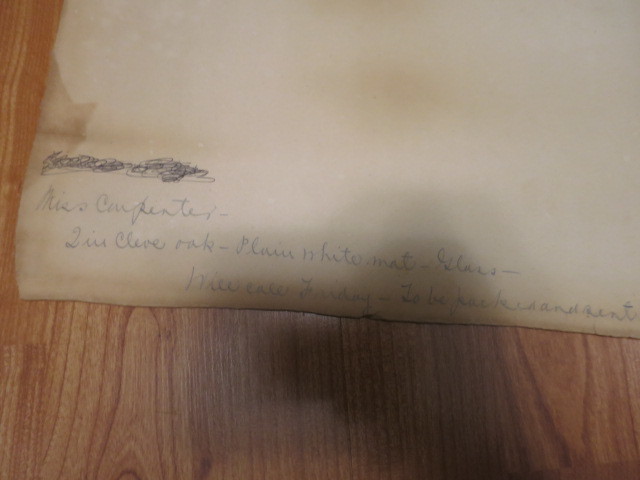 Miss Carpenter -
2 in Cleve oak - Plain white mat - Glass -
Will call Friday - To be packed and sent